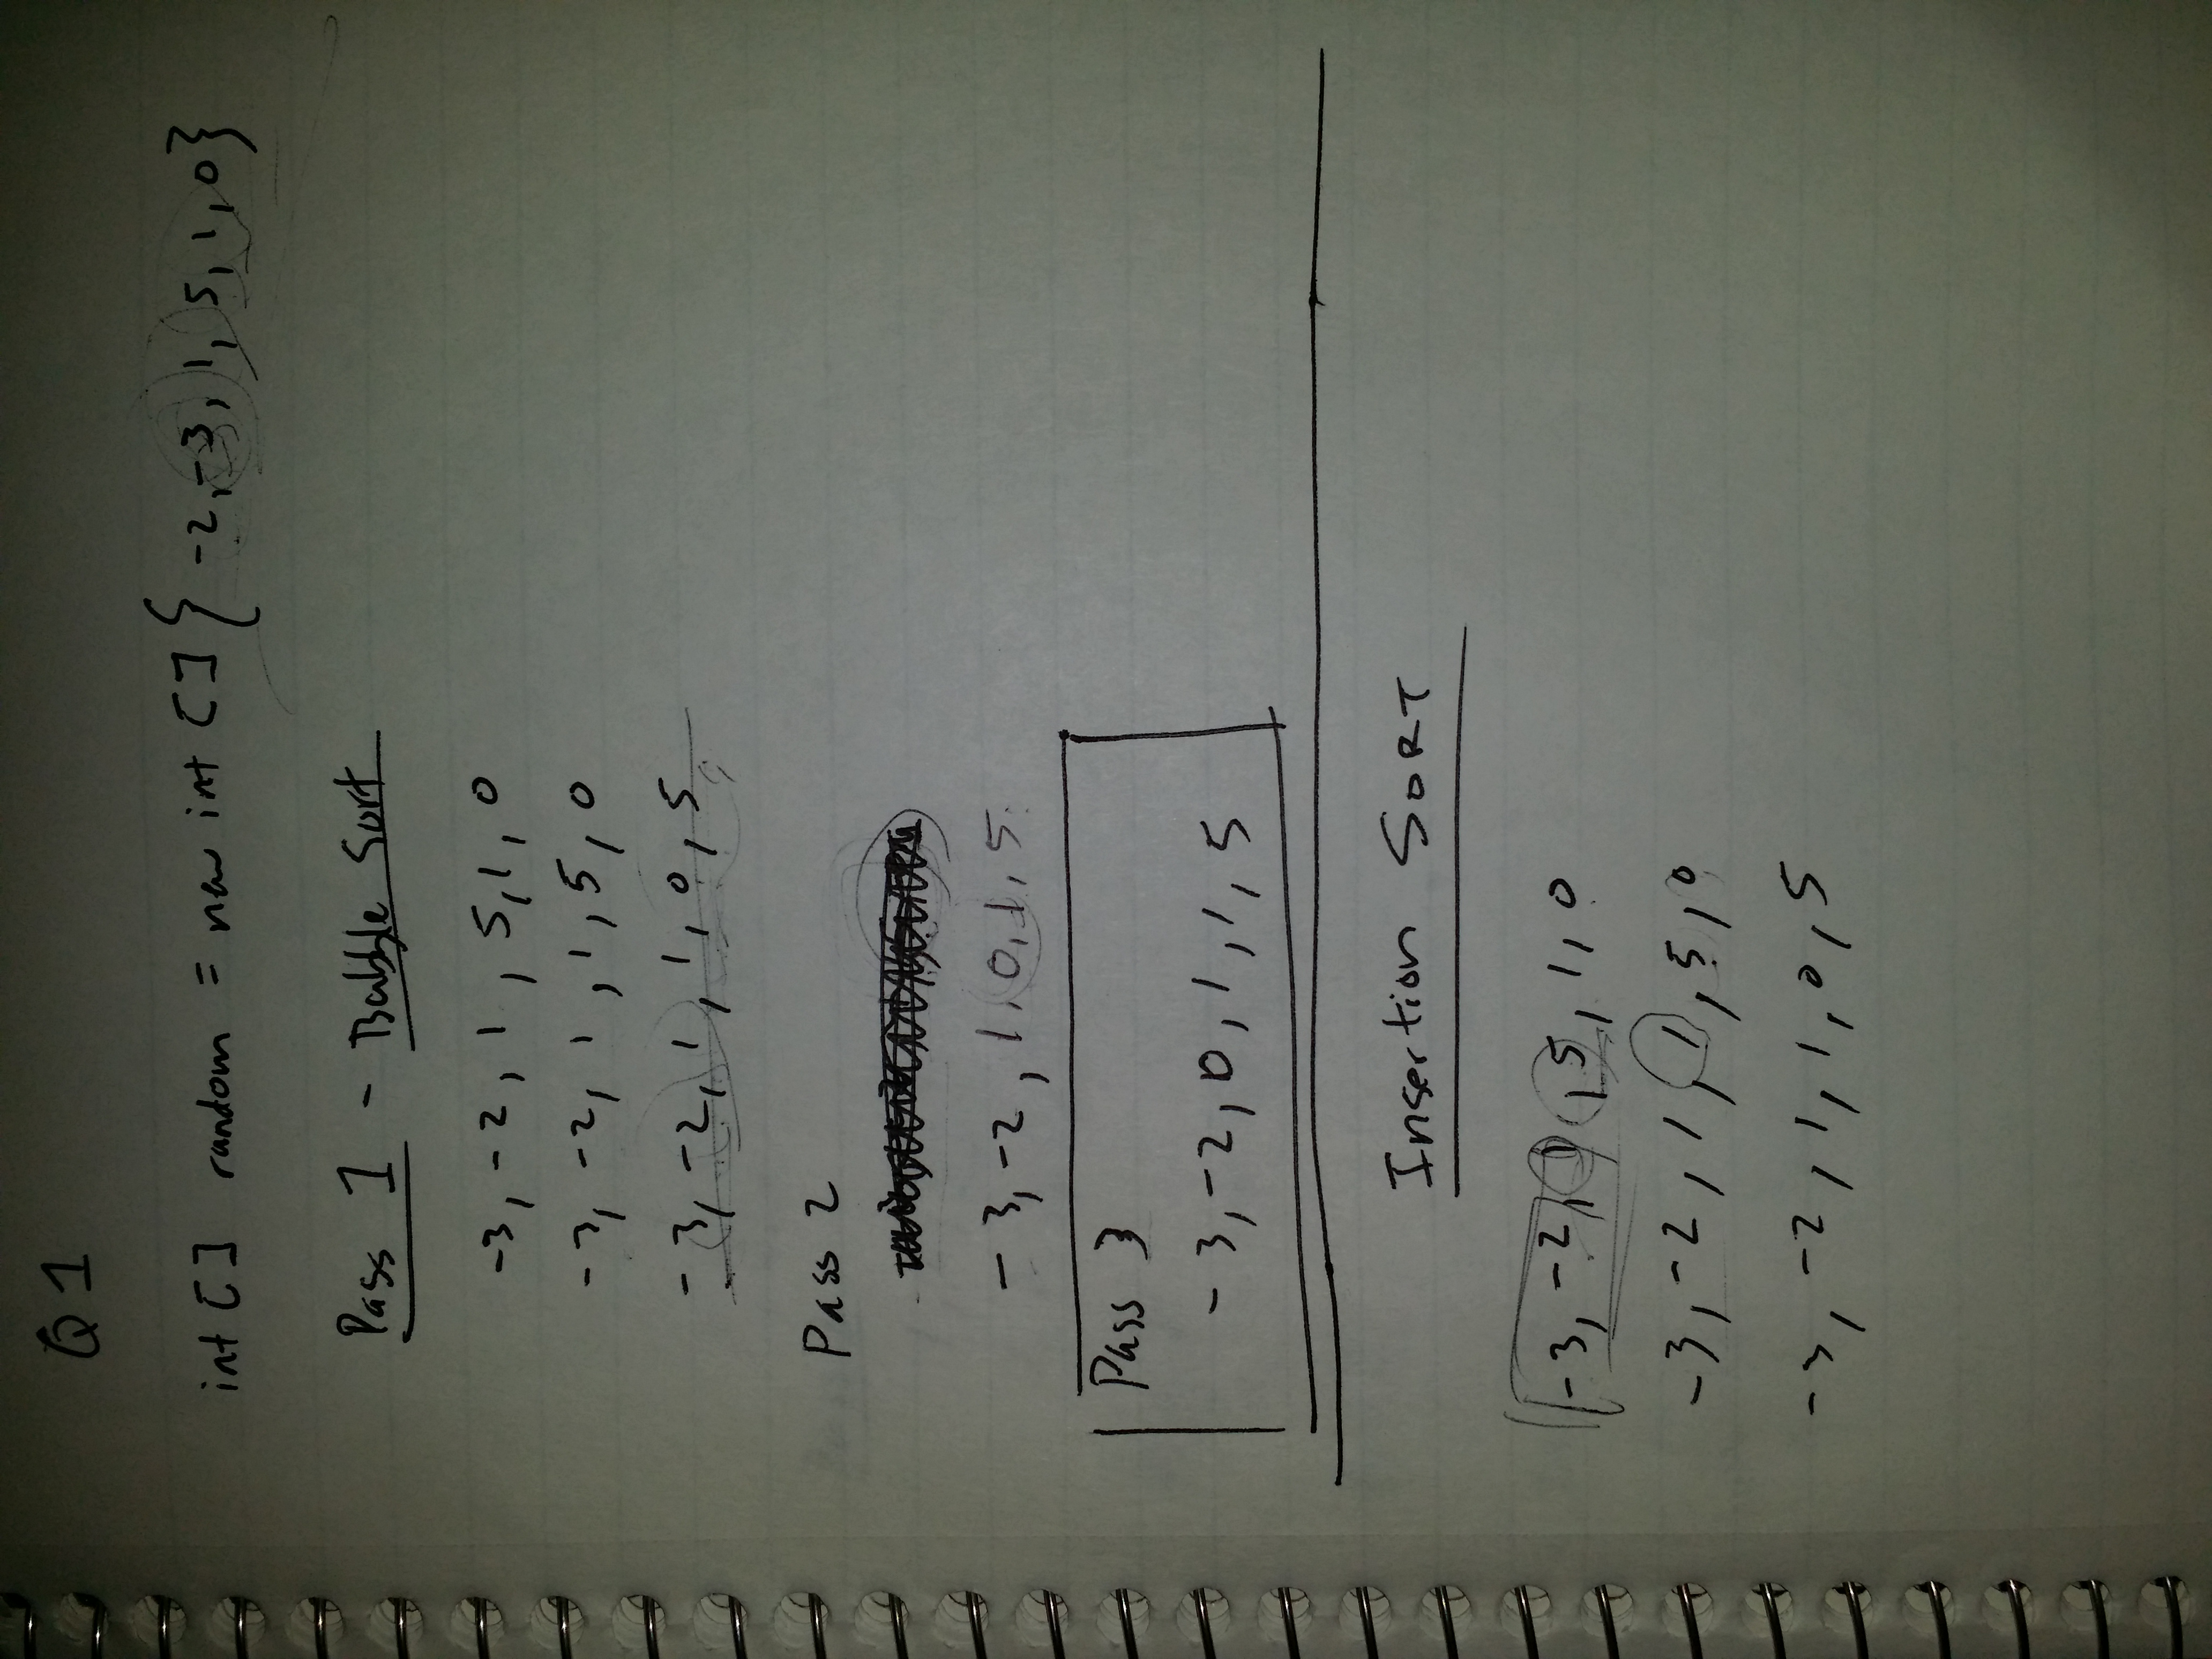 Q1
int [] random = new int []{ -2, -3, 1, 5, 1, 0}
Pass 1 - Bubble Sort
-3, -2, 1, 5, 1, 0
-3, -2, 1, 1, 5, 0
-3, -2, 1, 1, 0, 5
Pass 2
-3, -2, 1, 0, 1, 5
Pass 3
-3, -2, 0, 1, 1, 5
Insertion SORT
-3, -2, 1, 5, 1, 0
-3, -2, 1, 1, 5, 0
-3, -2, 1, 1, 0, 5